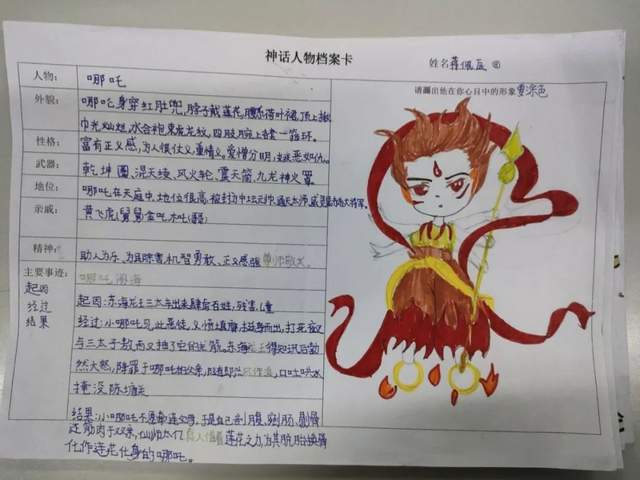 神话人物档案卡
姓名
人物：
哪吒
请画出他在你心目中的形象 要涂色
外貌：
哪吒身穿红肚兜，脖子戴莲花，腰系荷叶裙，顶上
巾光灿灿，水合袍束龙纹，四肢腕上各套一箍环。
性格：
富有正义感，为人侠仗义，重情义，爱憎分明，嫉恶如仇。
武器：
乾坤圈、混天绫、风火轮、震天箭、九龙神火罩。
地位：
哪吒在天庭中地位很高，被封为中坛元帅、通天太师、大将军。
亲戚：
黄飞虎(舅舅)金吒木吒(哥哥)
精神：
助人为乐、为民除害、机智勇敢、正义感强 尊师敬长。
主要事迹：
哪吒闹海
起因
经过
结果
起因：东海龙王三太子出来肆虐百姓，残害儿童
经过：小哪吒见此恶徒，义愤填膺，挺身而出，打死夜叉
与三太子敖丙又抽了它的龙筋，东海龙王得知讯后勃
然大怒，降罪于哪吒的父亲，随即兴风作浪，口吐洪水
掩没陈塘关
结果：小哪吒不愿牵连父母，于是自己剖腹、剜肠、剔骨
还筋肉于父亲，仙师太乙真人借着莲花之力为其脱胎换骨
化作莲花化身的哪吒。